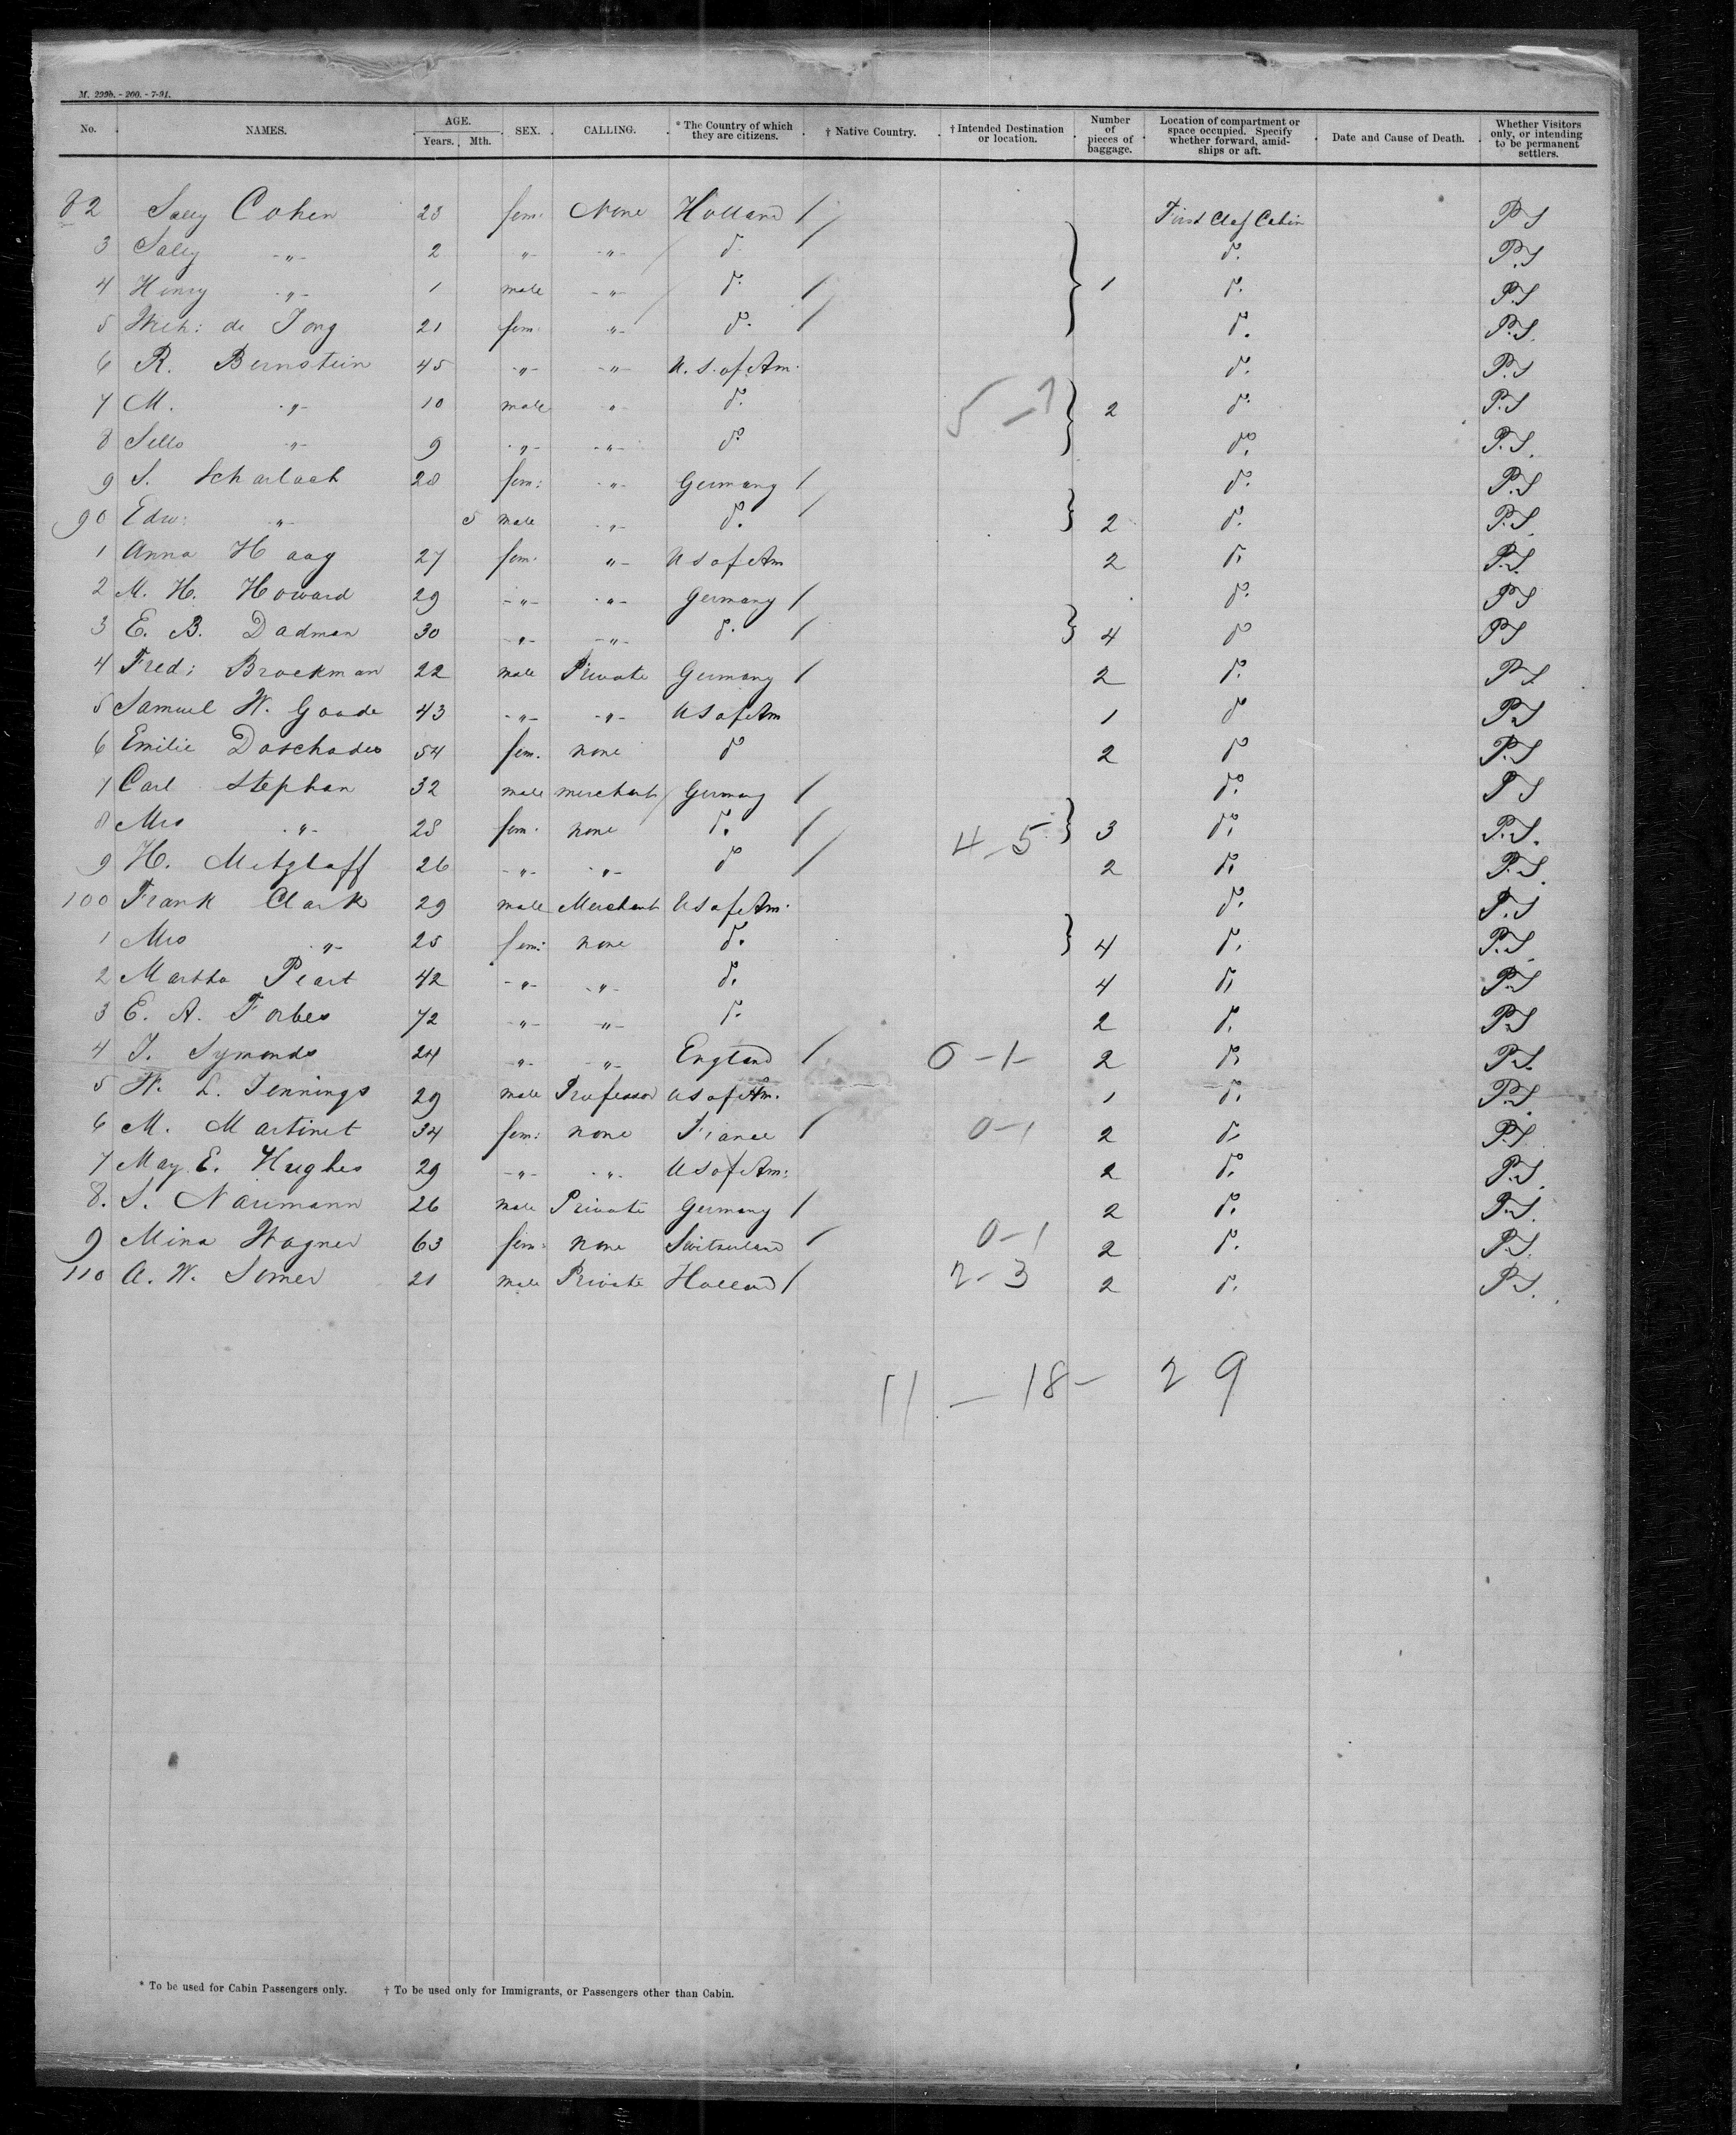 M. 299b. - 200. - 7-91.
No. NAMES. AGE. Years. Mth. SEX. CALLING. * The Country of which they are citizens. † Native Country. † Intended Destination or location. Number of pieces of baggage. Location of compartment or space occupied. Specify whether forward, amidships or aft. Date and Cause of Death. Whether Visitors only, or intending to be permanent settlers.
82 Sally Cohen 23 fem: None Holland / First Class Cabin P.S
3 Sally -"- 2 -"- -"- do. do. P.S
4 Henry -"- 1 male -"- do. / } 1 do. P.S
5 de Jong 21 fem. -"- do. / do. P.S.
6 R. Bernstein 45 -"- -"- U.S. of Am. do. P.S
7 M. -"- 10 male -"- do. 5-7 } 2 do. P.S
8 -"- 9 -"- -"- do. do. P.S.
9 S. Scharlach 28 fem: -"- Germany / do. P.S
90 Edw: -"- 5 male -"- do. } 2 do. P.S.
1 Anna Haag 27 fem. -"- U S of Am 2 do. P.S.
2 M. H. Howard 29 -"- -"- Germany / do. P.S
3 E. B. Dadman 30 -"- -"- do. / } 4 do. P.S
4 Fred: Brockman 22 male Private Germany / 2 do. P.S
5 Samuel W. Goode 43 -"- -"- U S of Am 1 do. P.S
6 Emilie 54 fem. none do. 2 do. P.S
7 Carl Stephan 32 male merchant Germany / do. P.S
8 Mrs -"- 28 fem. none do. / 4-5 } 3 do. P.S.
9 H. Metzlaff 26 -"- -"- do. / 2 do. P.S.
100 Frank Clark 29 male Merchant U S of Am. do. P.S
1 Mrs -"- 25 fem: none do. } 4 do. P.S.
2 Martha Peart 42 -"- -"- do. 4 do. P.S
3 E. A. Forbes 72 -"- -"- do. 2 do. P.S
4 J. Symonds 24 -"- -"- England / 0-1- 2 do. P.S.
5 W. L. Jennings 29 male Professor U S of Am. 1 do. P.S.
6 M. Martinet 34 fem: none France / 0-1 2 do. P.S.
7 May E. Hughes 29 -"- -"- U S of Am: 2 do. P.S.
8. S. Naumann 26 male Private Germany / 2 do. P.S.
9 Mina Wagner 63 fem: none Switzerland / 0-1 2 do. P.S.
110 A. W. Somer 21 male Private Holland / 2-3 2 do. P.S.
11 - 18 - 29
* To be used for Cabin Passengers only. † To be used only for Immigrants, or Passengers other than Cabin.